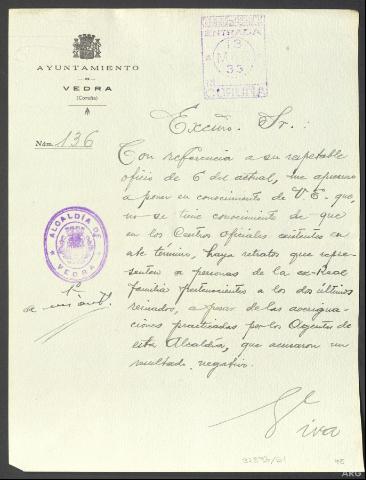 AYUNTAMIENTO
DE
VEDRA
(Coruña)
ENTRADA
13
M
33
CORUÑA
Núm. 136
Excmo. Sr.:
Con referencia a su respetable
oficio de 6 del actual, me apresuro
a poner en conocimiento de V.E. que,
no se tiene conocimiento de que
en los Centros oficiales existentes en
este término, haya retratos que repre-
senten a personas de la ex-Real
familia pertenecientes a los dos últimos
reinados, a pesar de las averigua-
ciones practicadas por los Agentes de
esta Alcaldía, que acusaron un
resultado negativo.
ALCALDIA DE
VEDRA
1º
de
Viva
32896/21
45
ARG